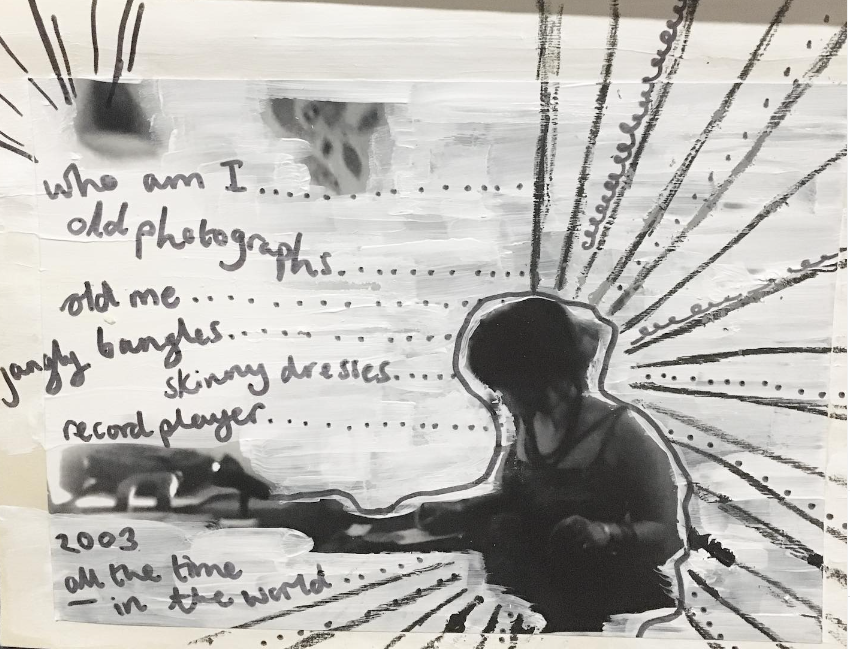 who am I..................
old photographs...............
old me................
jangly bangles...............
skinny dresses.....
record player..............
2003
all the time
— in the world......